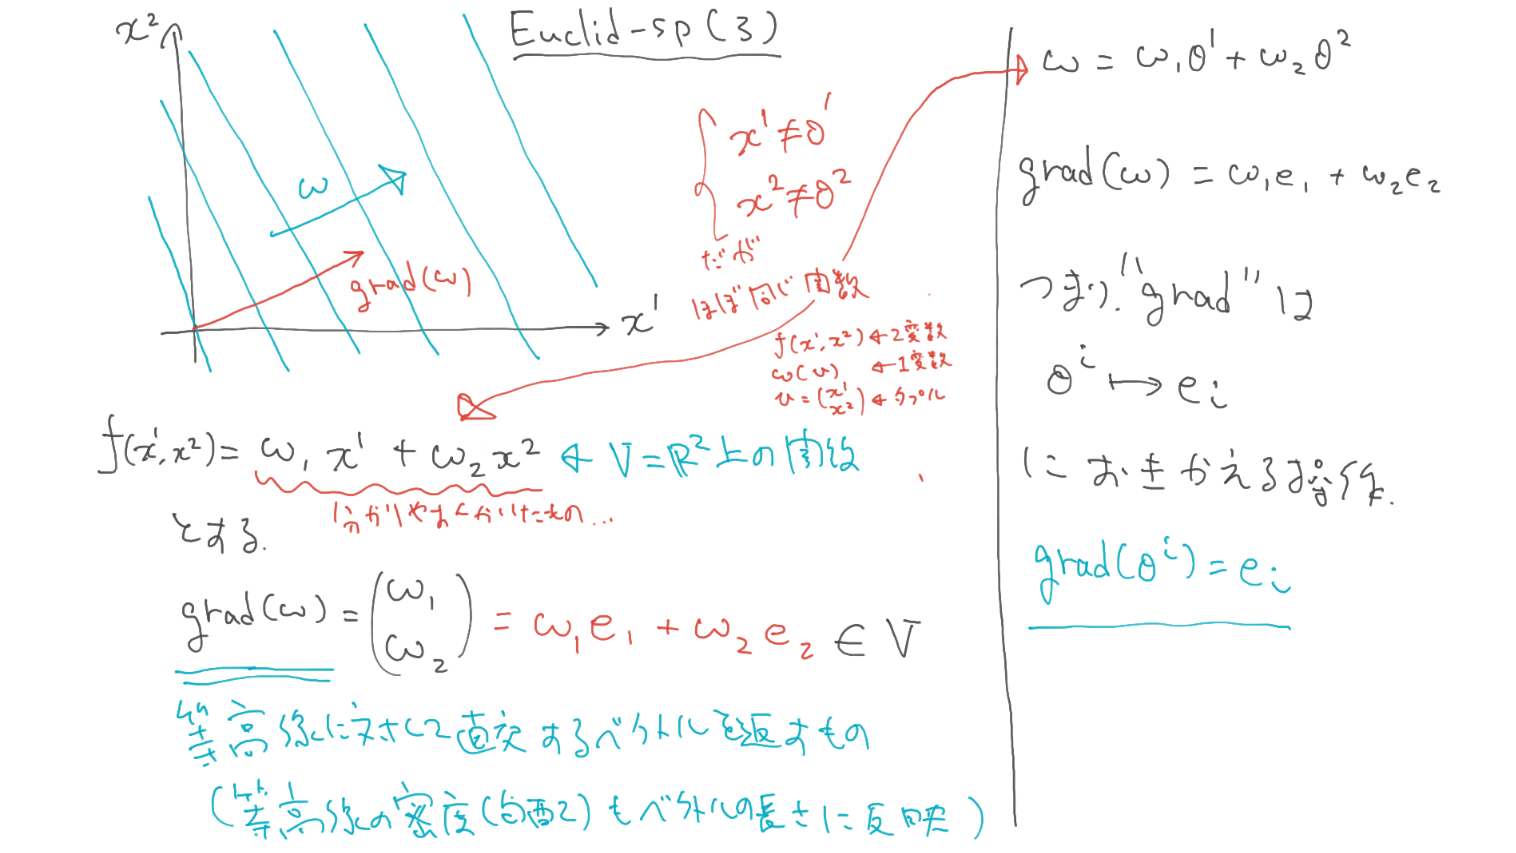 Euclid-sp(3)
x²
ω
grad(ω)
x¹
x¹≠θ¹
x²≠θ²
だが
ほぼ同じ関数
f(x¹,x²) ← 2変数
ω(v) ← 1変数
v=(x¹ x²) ← タプル
f(x¹,x²)= ω₁x¹ + ω₂x² ← V=ℝ²上の関数
分かりやすくかいたもの...
とする.
grad(ω) = (ω₁ ω₂) = ω₁e₁ + ω₂e₂ ∈ V
等高線に対して直交するベクトルを返すもの
(等高線の密度(勾配)もベクトルの長さに反映)
ω = ω₁θ¹ + ω₂θ²
grad(ω) = ω₁e₁ + ω₂e₂
つまり."grad"は
θⁱ ↦ eᵢ
におきかえる操作.
grad(θⁱ) = eᵢ